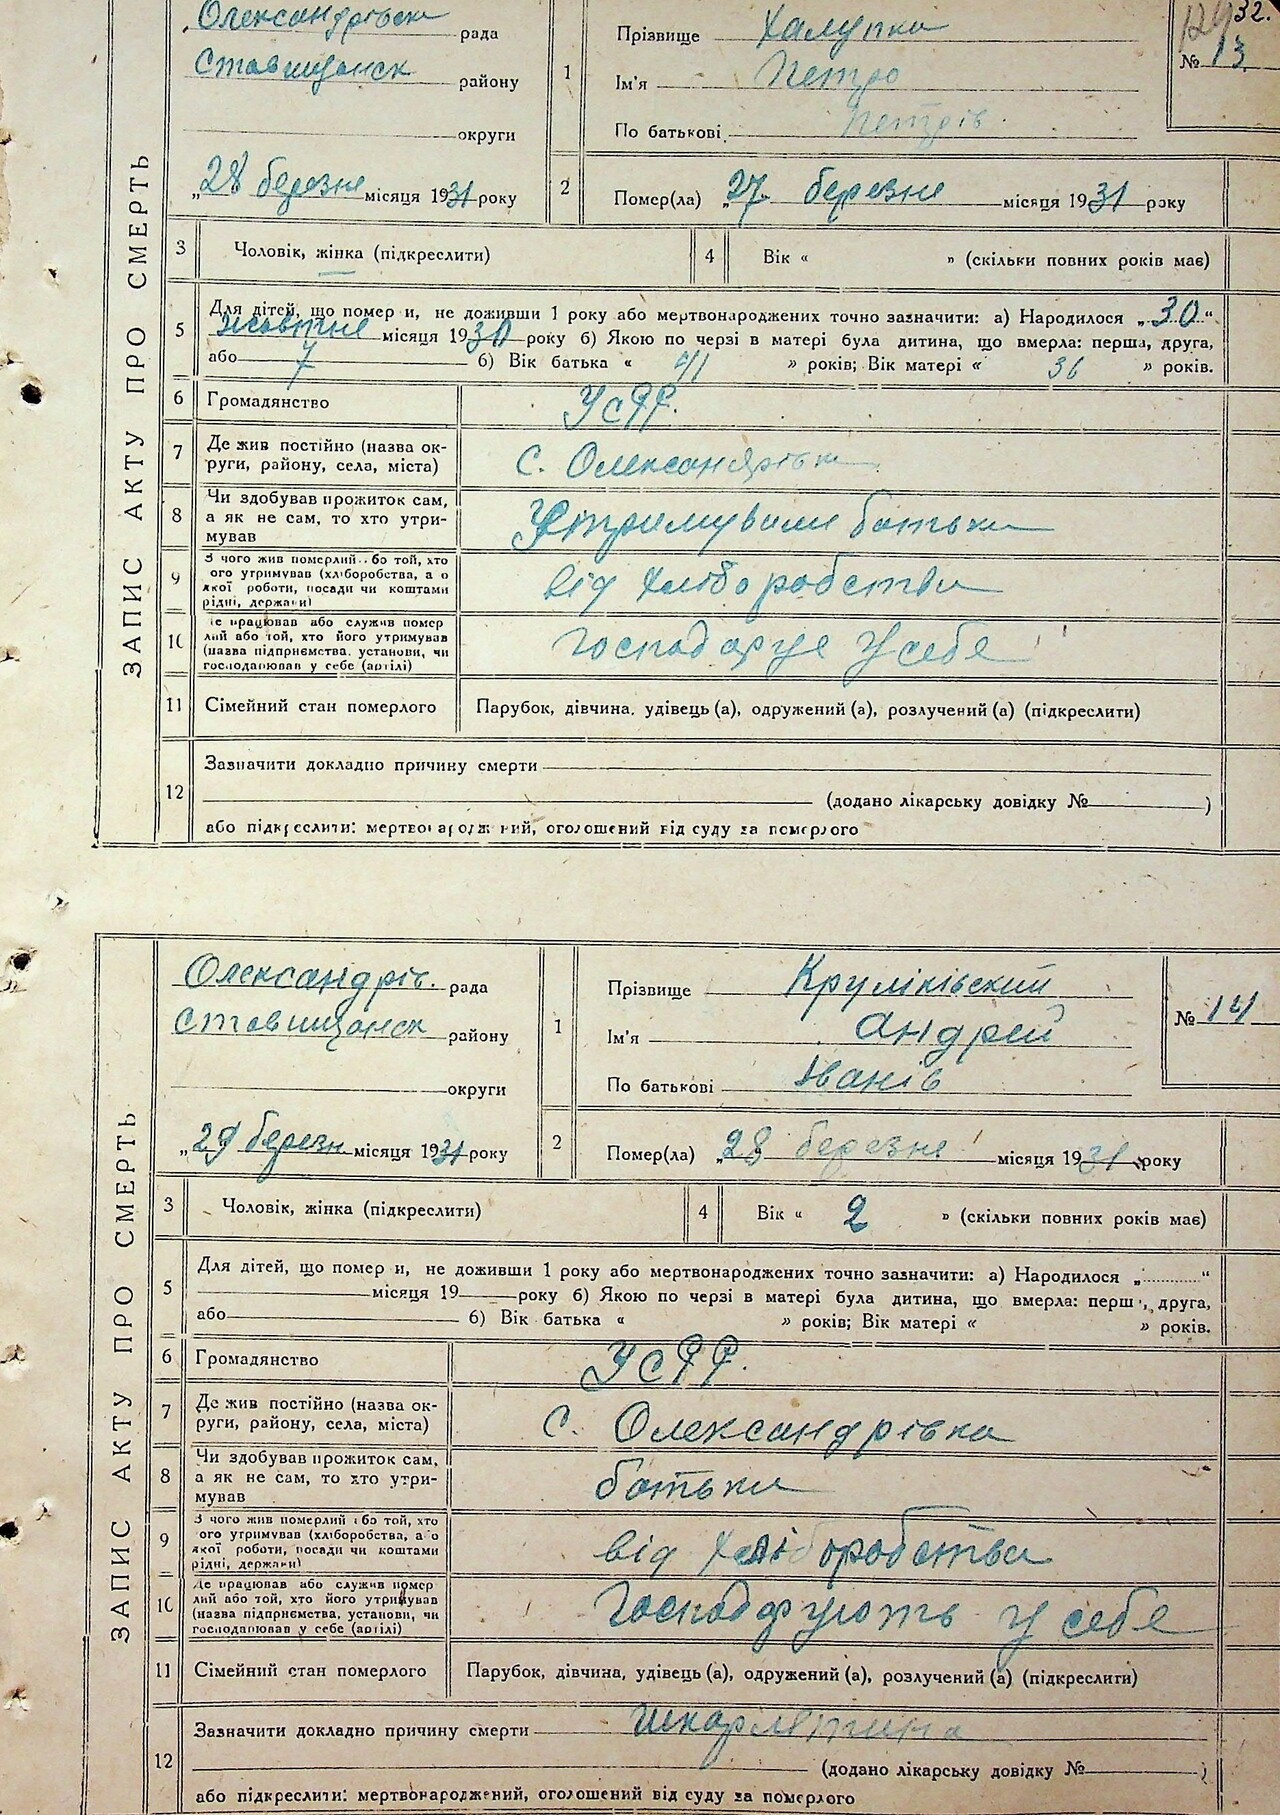 Олександрівськ рада
Ставищанск району
округи
„28 березня місяця 1931 року
1
Прізвище Халупка
Ім'я Петро
По батькові Петрів
32.
№ 13
2
Помер(ла) „27 березня місяця 1931 року
ЗАПИС АКТУ ПРО СМЕРТЬ
3 Чоловік, жінка (підкреслити) 4 Вік « » (скільки повних років має)
5 Для дітей, що помер и, не доживши 1 року або мертвонароджених точно зазначити: а) Народилося „30“
жовтня місяця 1930 року б) Якою по черзі в матері була дитина, що вмерла: перша, друга,
або 7 б) Вік батька « 41 » років; Вік матері « 36 » років.
6 Громадянство УСРР.
7 Де жив постійно (назва ок-
руги, району, села, міста) с. Олександрівка
8 Чи здобував прожиток сам,
а як не сам, то хто утри-
мував Утримували батьки
9 З чого жив померлий бо той, хто
ого утримував (хліборобства, а о
якої роботи, посади чи коштами
рідні, держави) від хліборобства
10 е працював або служив помер
лий або той, хто його утримував
(назва підприємства, установи, чи
господарював у себе (артілі) господарує у себе
11 Сімейний стан померлого Парубок, дівчина, удівець (а), одружений (а), розлучений (а) (підкреслити)
12 Зазначити докладно причину смерти
(додано лікарську довідку № )
або підкреслити: мертвонароджений, оголошений від суду за померлого
Олександрів. рада
Ставищанск району
округи
„29 березн місяця 1931 року
1
Прізвище Круліківский
Ім'я Андрей
По батькові Іванів
№ 14
2
Помер(ла) „28 березня місяця 1931 року
ЗАПИС АКТУ ПРО СМЕРТЬ
3 Чоловік, жінка (підкреслити) 4 Вік « 2 » (скільки повних років має)
5 Для дітей, що помер и, не доживши 1 року або мертвонароджених точно зазначити: а) Народилося „ “
місяця 19 року б) Якою по черзі в матері була дитина, що вмерла: перш , друга,
або б) Вік батька « » років; Вік матері « » років.
6 Громадянство УСРР.
7 Де жив постійно (назва ок-
руги, району, села, міста) с. Олександрівка
8 Чи здобував прожиток сам,
а як не сам, то хто утри-
мував батьки
9 З чого жив померлий або той, хто
ого утримував (хліборобства, а о
якої роботи, посади чи коштами
рідні, держави) від хліборобства
10 Де працював або служив помер
лий або той, хто його утримував
(назва підприємства, установи, чи
господарював у себе (артілі) Господарують у себе
11 Сімейний стан померлого Парубок, дівчина, удівець (а), одружений (а), розлучений (а) (підкреслити)
12 Зазначити докладно причину смерти шкарлятина
(додано лікарську довідку № )
або підкреслити: мертвонароджений, оголошений від суду за померлого